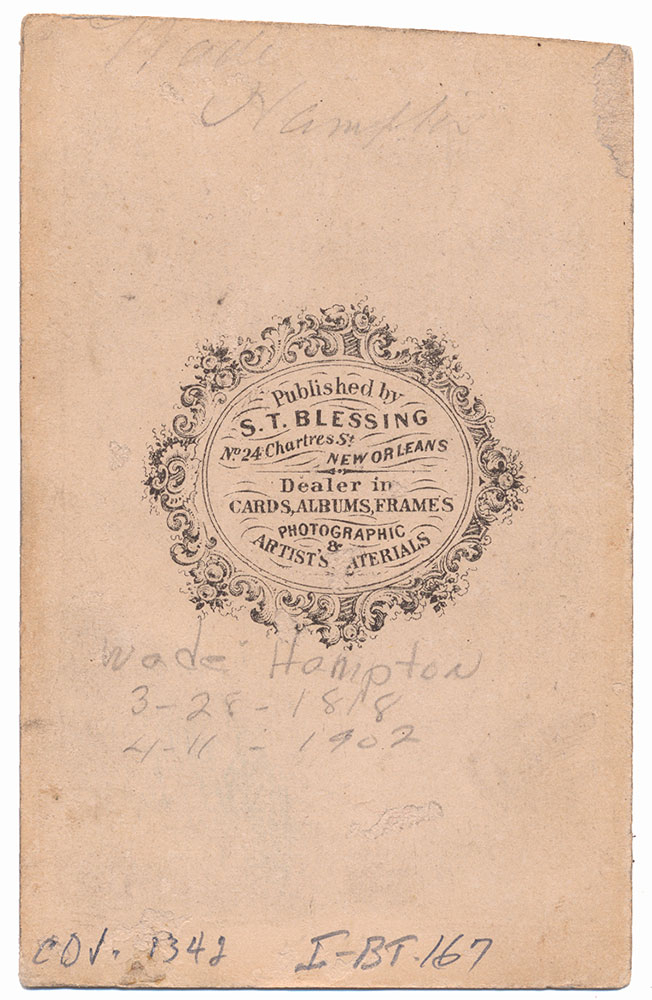 Wade
Hampton
Published by
S. T. BLESSING
No. 24 Chartres St.
NEW ORLEANS
Dealer in
CARDS, ALBUMS, FRAMES
PHOTOGRAPHIC
&
ARTIST'S ATERIALS
Wade Hampton
3-28-1818
4-11-1902
CDV. 1342 I-BT.167